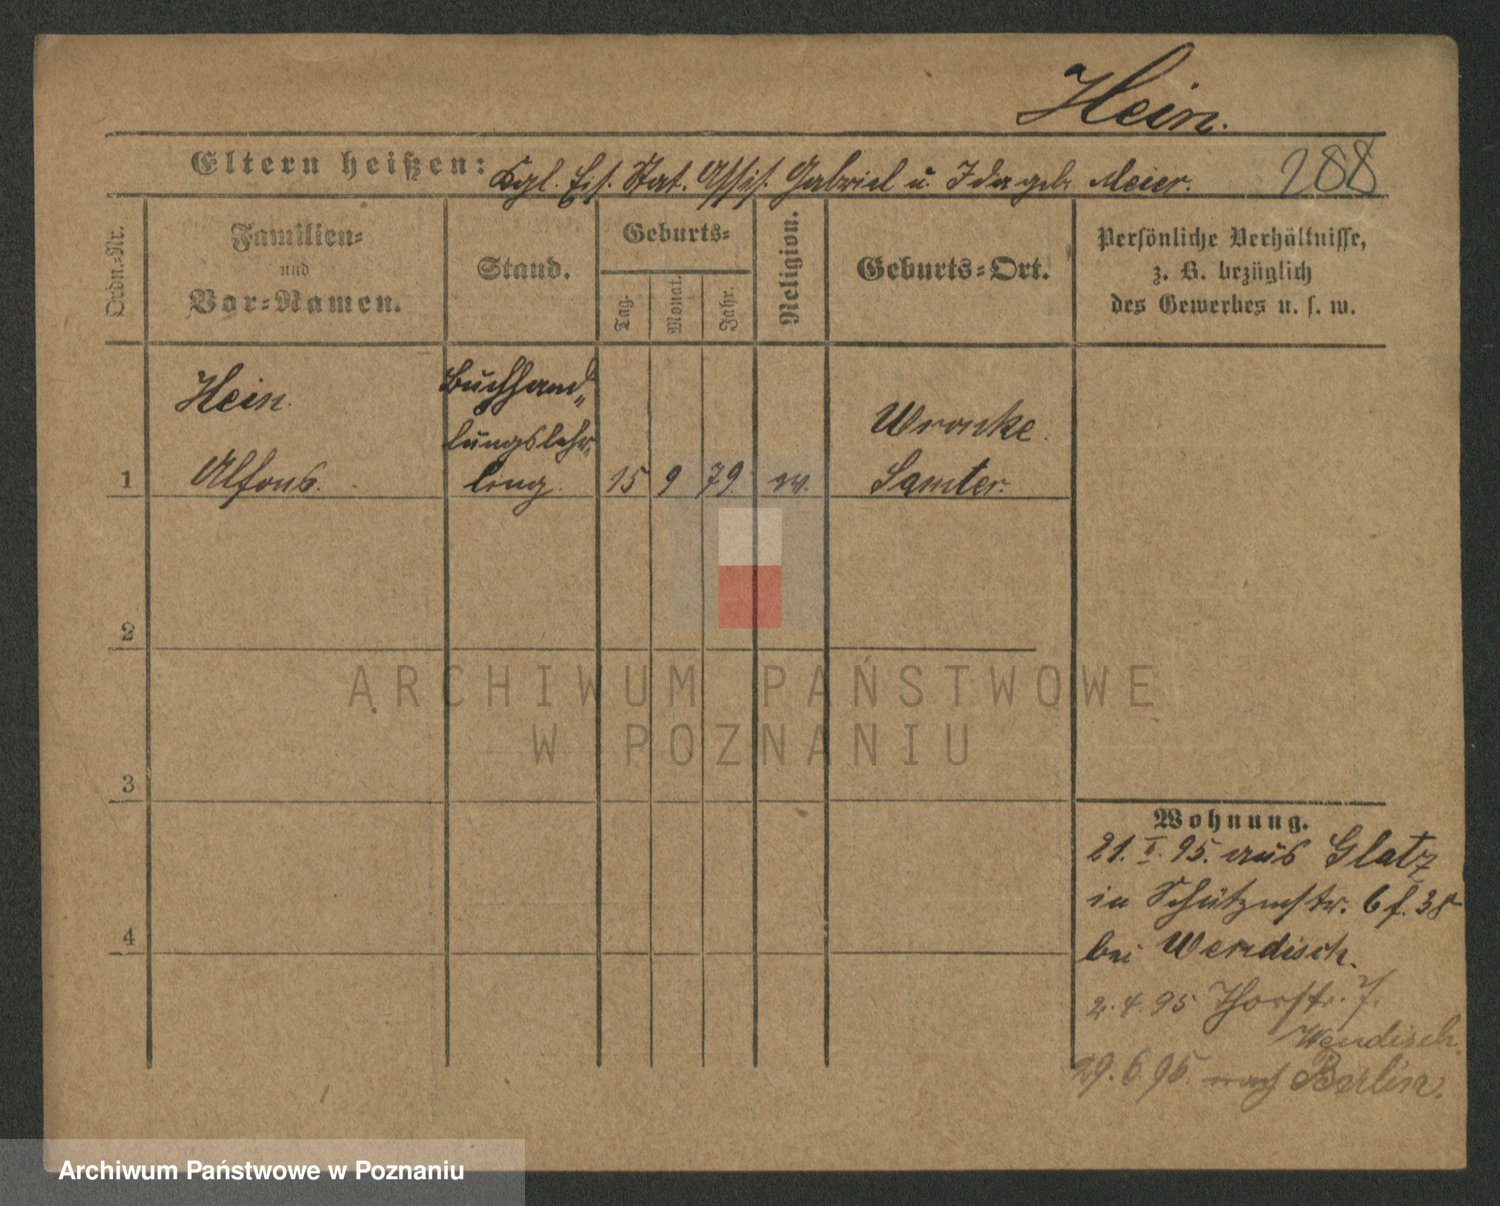 Hein.
Eltern heißen: Kgl. Eis. Stat. Assis. Gabriel u. Ida geb. Meier.
288
Ordn.-Nr.
Familien-
und
Vor-Namen.
Stand.
Geburts-
Tag.
Monat.
Jahr.
Religion.
Geburts-Ort.
Persönliche Verhältnisse,
z. B. bezüglich
des Gewerbes u. s. w.
Hein
Alfons.
Buchhand„
lungslehr„
ling.
1
15 9 79
Wronke.
Samter.
2
3
4
Wohnung.
21. I. 95. aus Glatz
in Schützenstr. 6 f. 38
bei Wendisch.
2. 4. 95 Thorstr. 7.
Wendisch.
29. 6 95. nach Berlin.
ARCHIWUM PAŃSTWOWE
W POZNANIU
Archiwum Państwowe w Poznaniu